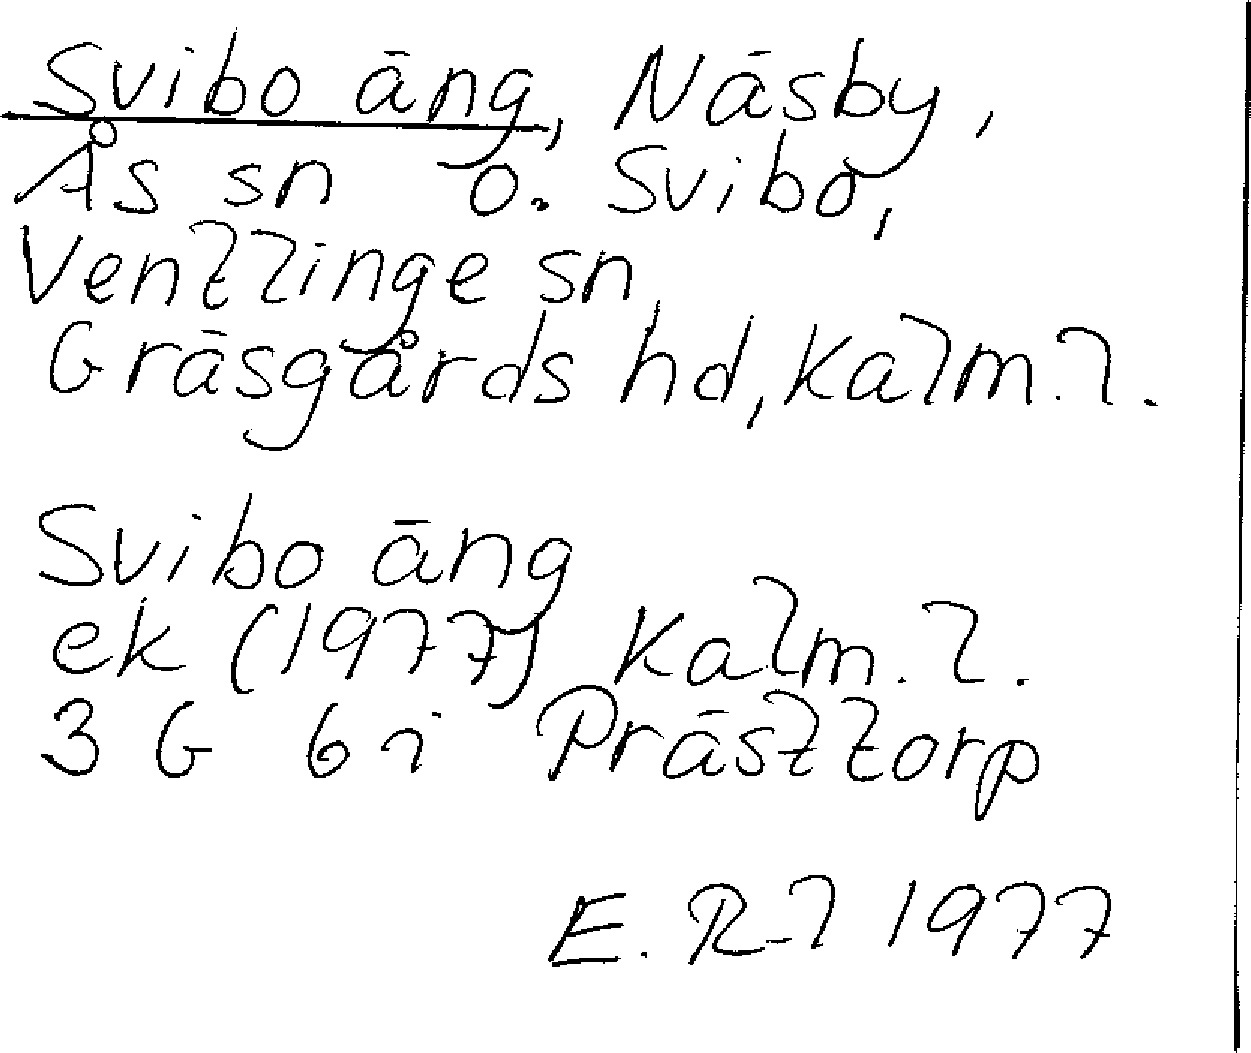 Svibo äng, Näsby,
Ås sn o. Svibo,
Ventlinge sn
Gräsgårds hd, Kalm. l.
Svibo äng
ek (1977) Kalm. l.
3 G 6 i Prästtorp
E. R-l 1977